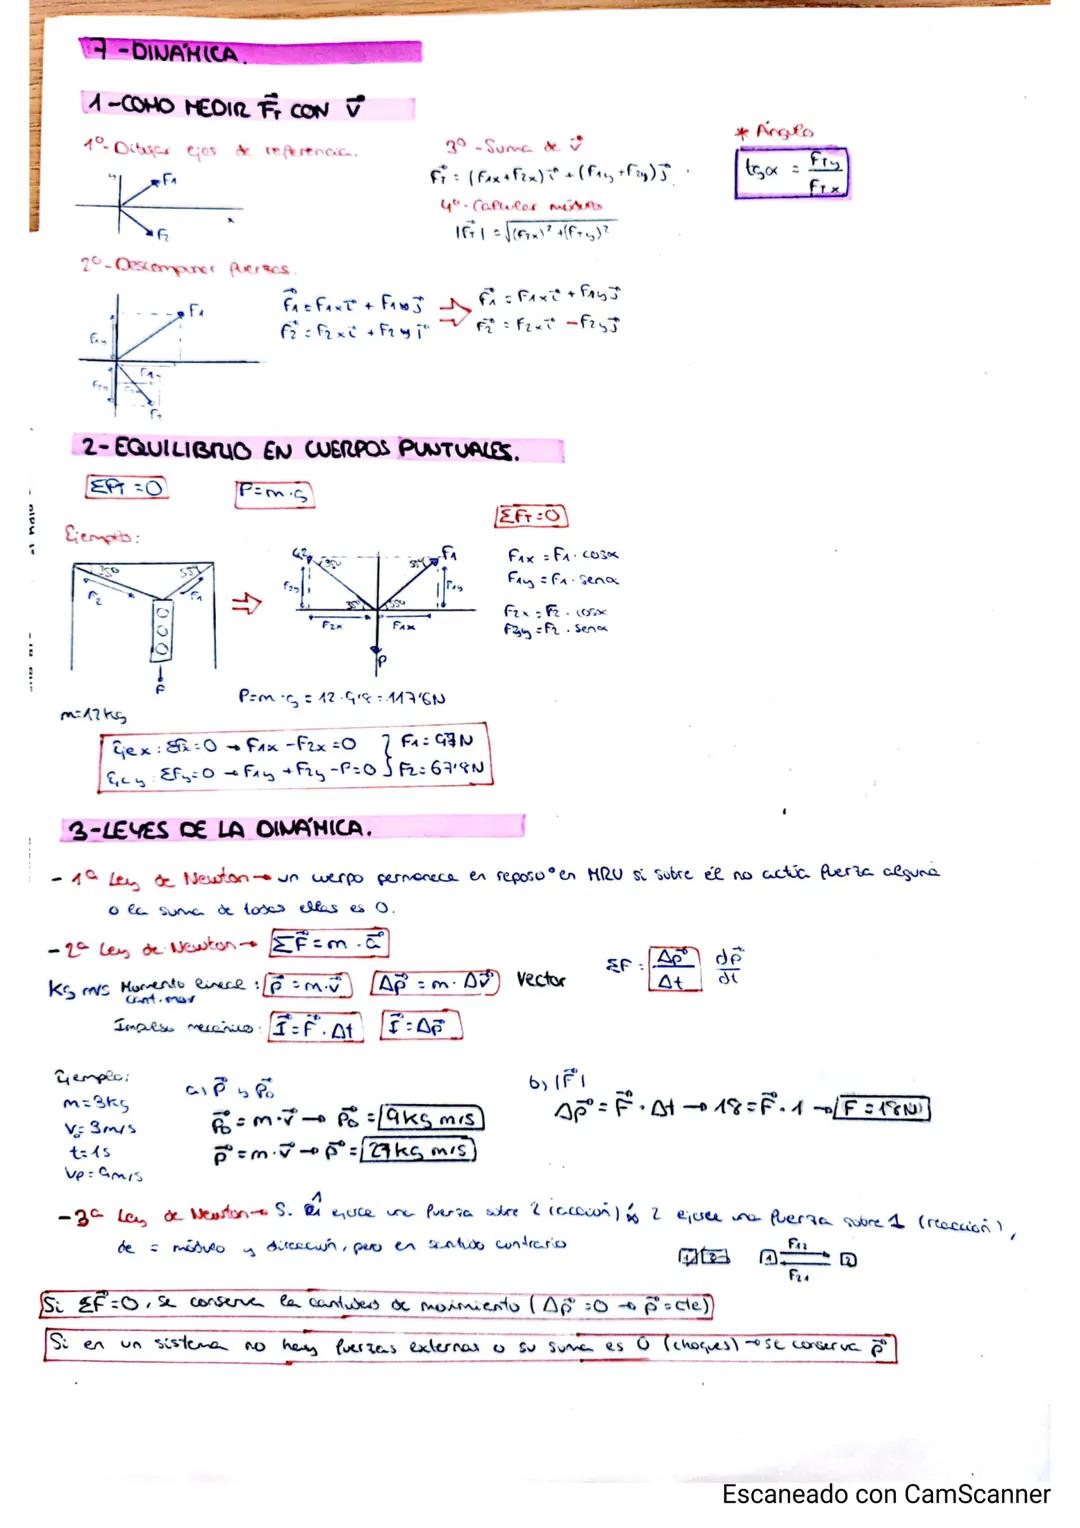 7-DINÁMICA.
1-COMO MEDIR F⃗T CON V⃗
1º-Dibujar ejes de referencia.
y
F1
x
F2
3º-Suma de v⃗
F⃗T = (F1x+F2x)i⃗ + (F1y+F2y)j⃗.
4º-Calcular módulo
|F⃗T| = √(FTx)² + (FTy)²
* Ángulo
tgα = FTy / FTx
2º-Descomponer fuerzas.
F1
F1y
F⃗1 = F1x i⃗ + F1y j⃗ ⇒ F⃗1 = F1x i⃗ + F1y j⃗
F⃗2 = F2x i⃗ + F2y j⃗ F⃗2 = F2x i⃗ - F2y j⃗
2-EQUILIBRIO EN CUERPOS PUNTUALES.
P=m·g
ΣFT=0
Ejemplo:
35º 55º
F2 F1
P
⇒
35º 55º F1
F2y F1y
35º 55º
F2x F1x
P
F1x = F1·cosα
F1y = F1·senα
F2x = F2·cosα
F2y = F2·senα
m=12kg
P=m·g = 12·9'8 = 117'6N
Eje x: ΣFx=0 → F1x-F2x=0
Eje y: ΣFy=0 → F1y+F2y-P=0
F2=67'8N
3-LEYES DE LA DINÁMICA.
- 1ª Ley de Newton → un cuerpo permanece en reposo o en MRU si sobre él no actúa fuerza alguna
o la suma de todas ellas es 0.
- 2ª Ley de Newton → ΣF⃗=m·a⃗
ΣF = Δp⃗ / Δt dp⃗ / dt
Kg m/s Momento lineal: p⃗=m·v⃗ Δp⃗=m·Δv⃗ Vector
cant. mov
Impulso mecánico: I⃗=F⃗·Δt I⃗=Δp⃗
Ejemplo:
m=3kg
V0=3m/s
t=1s
VF=9m/s
a) p⃗ y p⃗0
p⃗0=m·v⃗ → p⃗0=9kg m/s
p⃗=m·v⃗ → p⃗=27kg m/s
b) |F⃗|
Δp⃗=F⃗·Δt → 18=F⃗·1 → F=18N
- 3ª Ley de Newton → Si 1 ejerce una fuerza sobre 2 (acción) 2 ejerce una fuerza sobre 1 (reacción),
de = módulo y dirección, pero en sentido contrario
1 2 1 F12 2
F21
Si ΣF⃗=0, se conserva la cantidad de movimiento (Δp⃗=0 → p⃗=cte)
Si en un sistema no hay fuerzas externas o su suma es 0 (choques) → se conserva p⃗
Escaneado con CamScanner